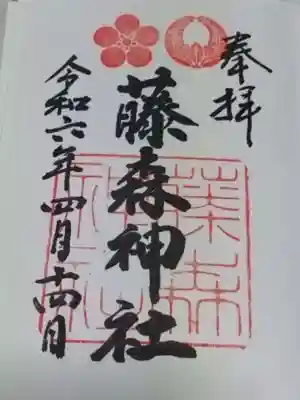 奉拝
藤森神社
令和六年四月十四日
藤森
神社